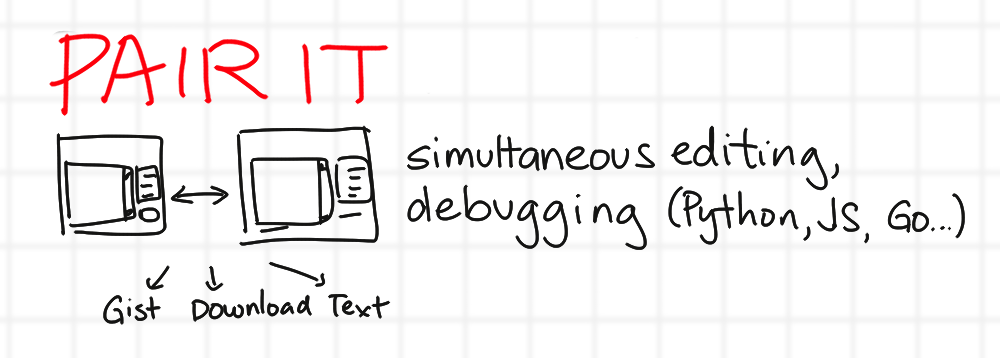 PAIR IT
simultaneous editing,
debugging (Python, JS, Go...)
Gist Download Text